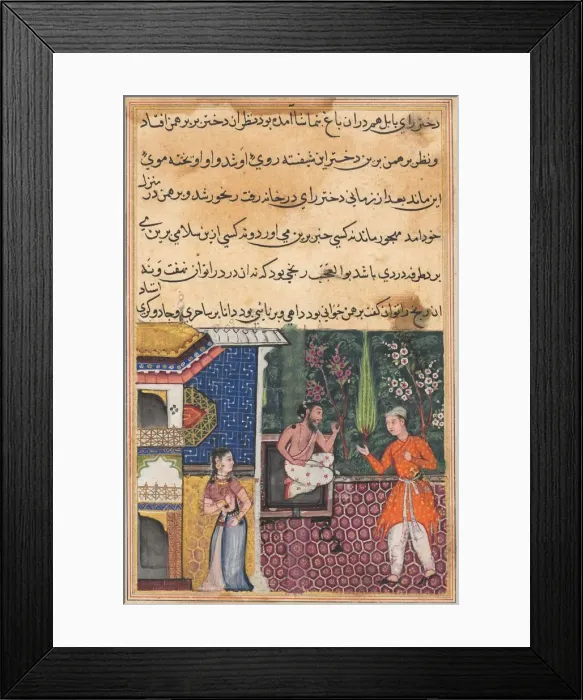 دختر رای بابل هم دران باغ بتماشا آمده بود نظر ان دختر بر برهمن افتاد
و نظر برهمن برین دختر این شیفته روی او شد و او اوخته موی
این ماند بعد از زمانی دختر رای در خانه رفت رنجور شد و برهمن در منزل
خود امد مهجور ماند نه کسی خبر برین می اورد و نه کسی ازین سلامی برین می
برد طرفه دردی باشد بوالعجب رنجی بود که نه ان درد را توان نهفت و نه
ان رنج را توان گفت برهمن جوانی بود داهی و برنائی بود دانا بر ساحری و جادوگری استاد